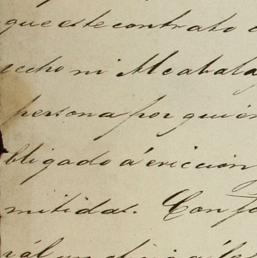 que este contrato
echo ni Alcabala
persona por quien
bligado á evicción
mitidas. Con